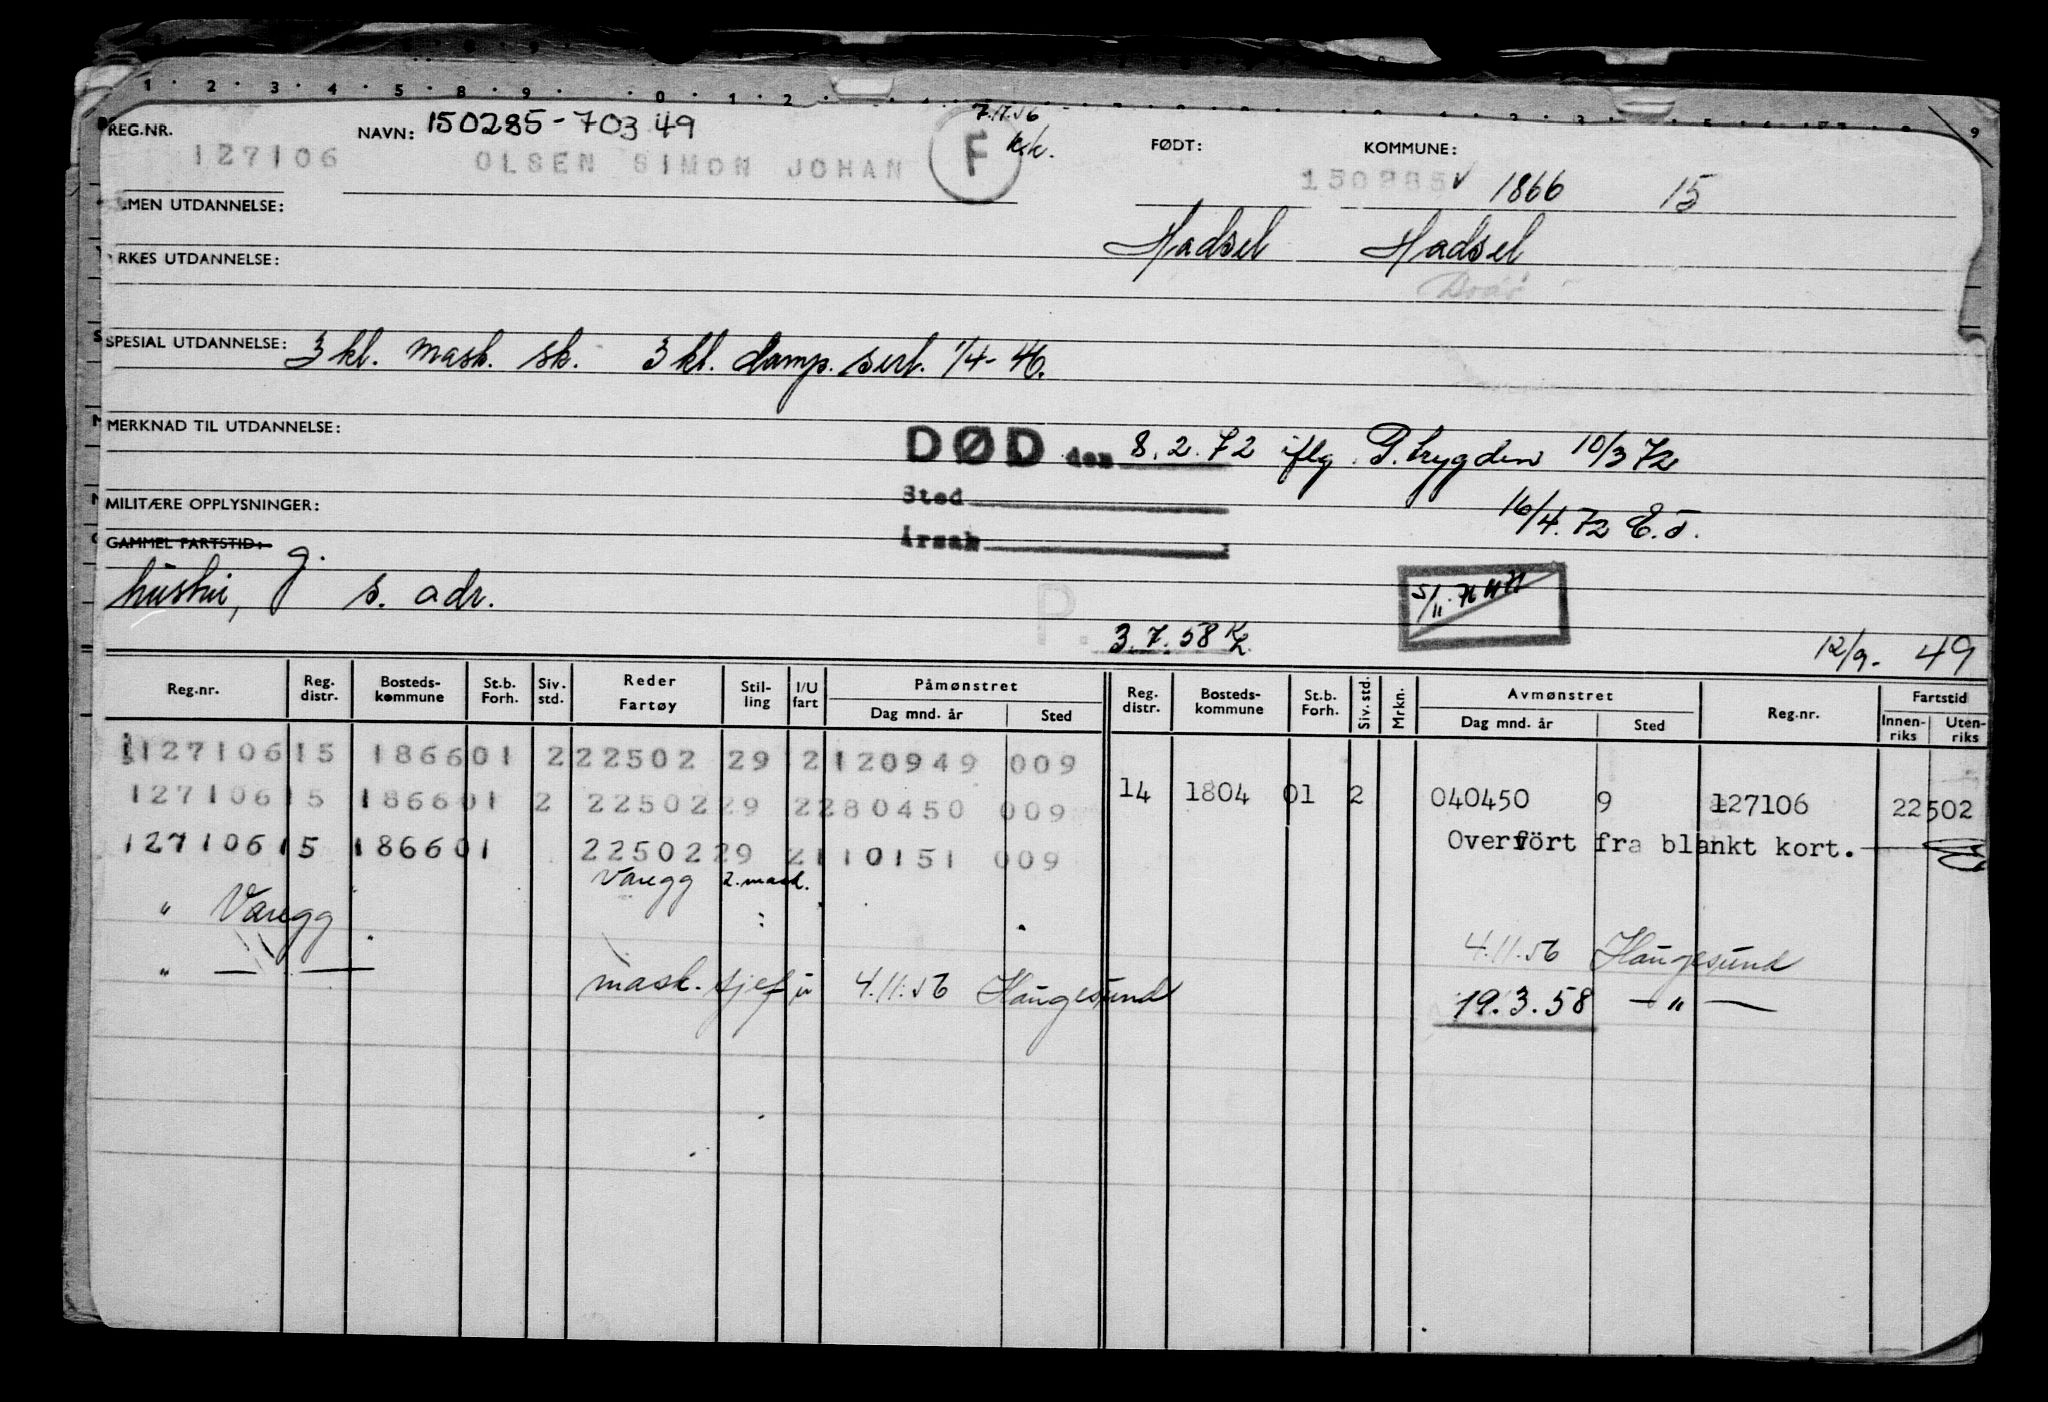 REG.NR. NAVN: 150285-70349 7.11.56 FØDT: KOMMUNE:
127106 OLSEN SIMON JOHAN F k.k. 150285 ✓ 1866 15
MEN UTDANNELSE: Hadsel Hadsel
RKES UTDANNELSE:
SPESIAL UTDANNELSE: 3 kl. mask. sk. 3 kl. damp. sert. 1/4-46.
MERKNAD TIL UTDANNELSE: DØD den 8.2.72 iflg. P.trygden 10/3 72
Sted
MILITÆRE OPPLYSNINGER: 16/4.72 E.J.
GAMMEL FARTSTID: Årsak
hustru, g. s. adr.
P. 3.7.58 5/11.71
12/9- 49
Reg.nr. Reg. distr. Bosteds-kommune St.b. Forh. Siv. std. Reder Fartøy Stil-ling I/U fart Påmønstret Dag mnd. år Sted Reg. distr. Bosteds-kommune St.b. Forh. Siv. std. Mrkn. Avmønstret Dag mnd. år Sted Reg.nr. Fartstid Innen-riks Uten-riks
127106 15 1866 01 2 22502 29 2 120949 009
127106 15 1866 01 2 22502 29 2 280450 009 14 1804 01 2 040450 9 127106 22502
127106 15 1866 01 22502 29 2 110151 009 Overført fra blankt kort.
Varegg 2. mask.
" Varegg 4.11.56 Haugesund
" — — mask. sjef u 4.11.56 Haugesund 19.3.58 — " —